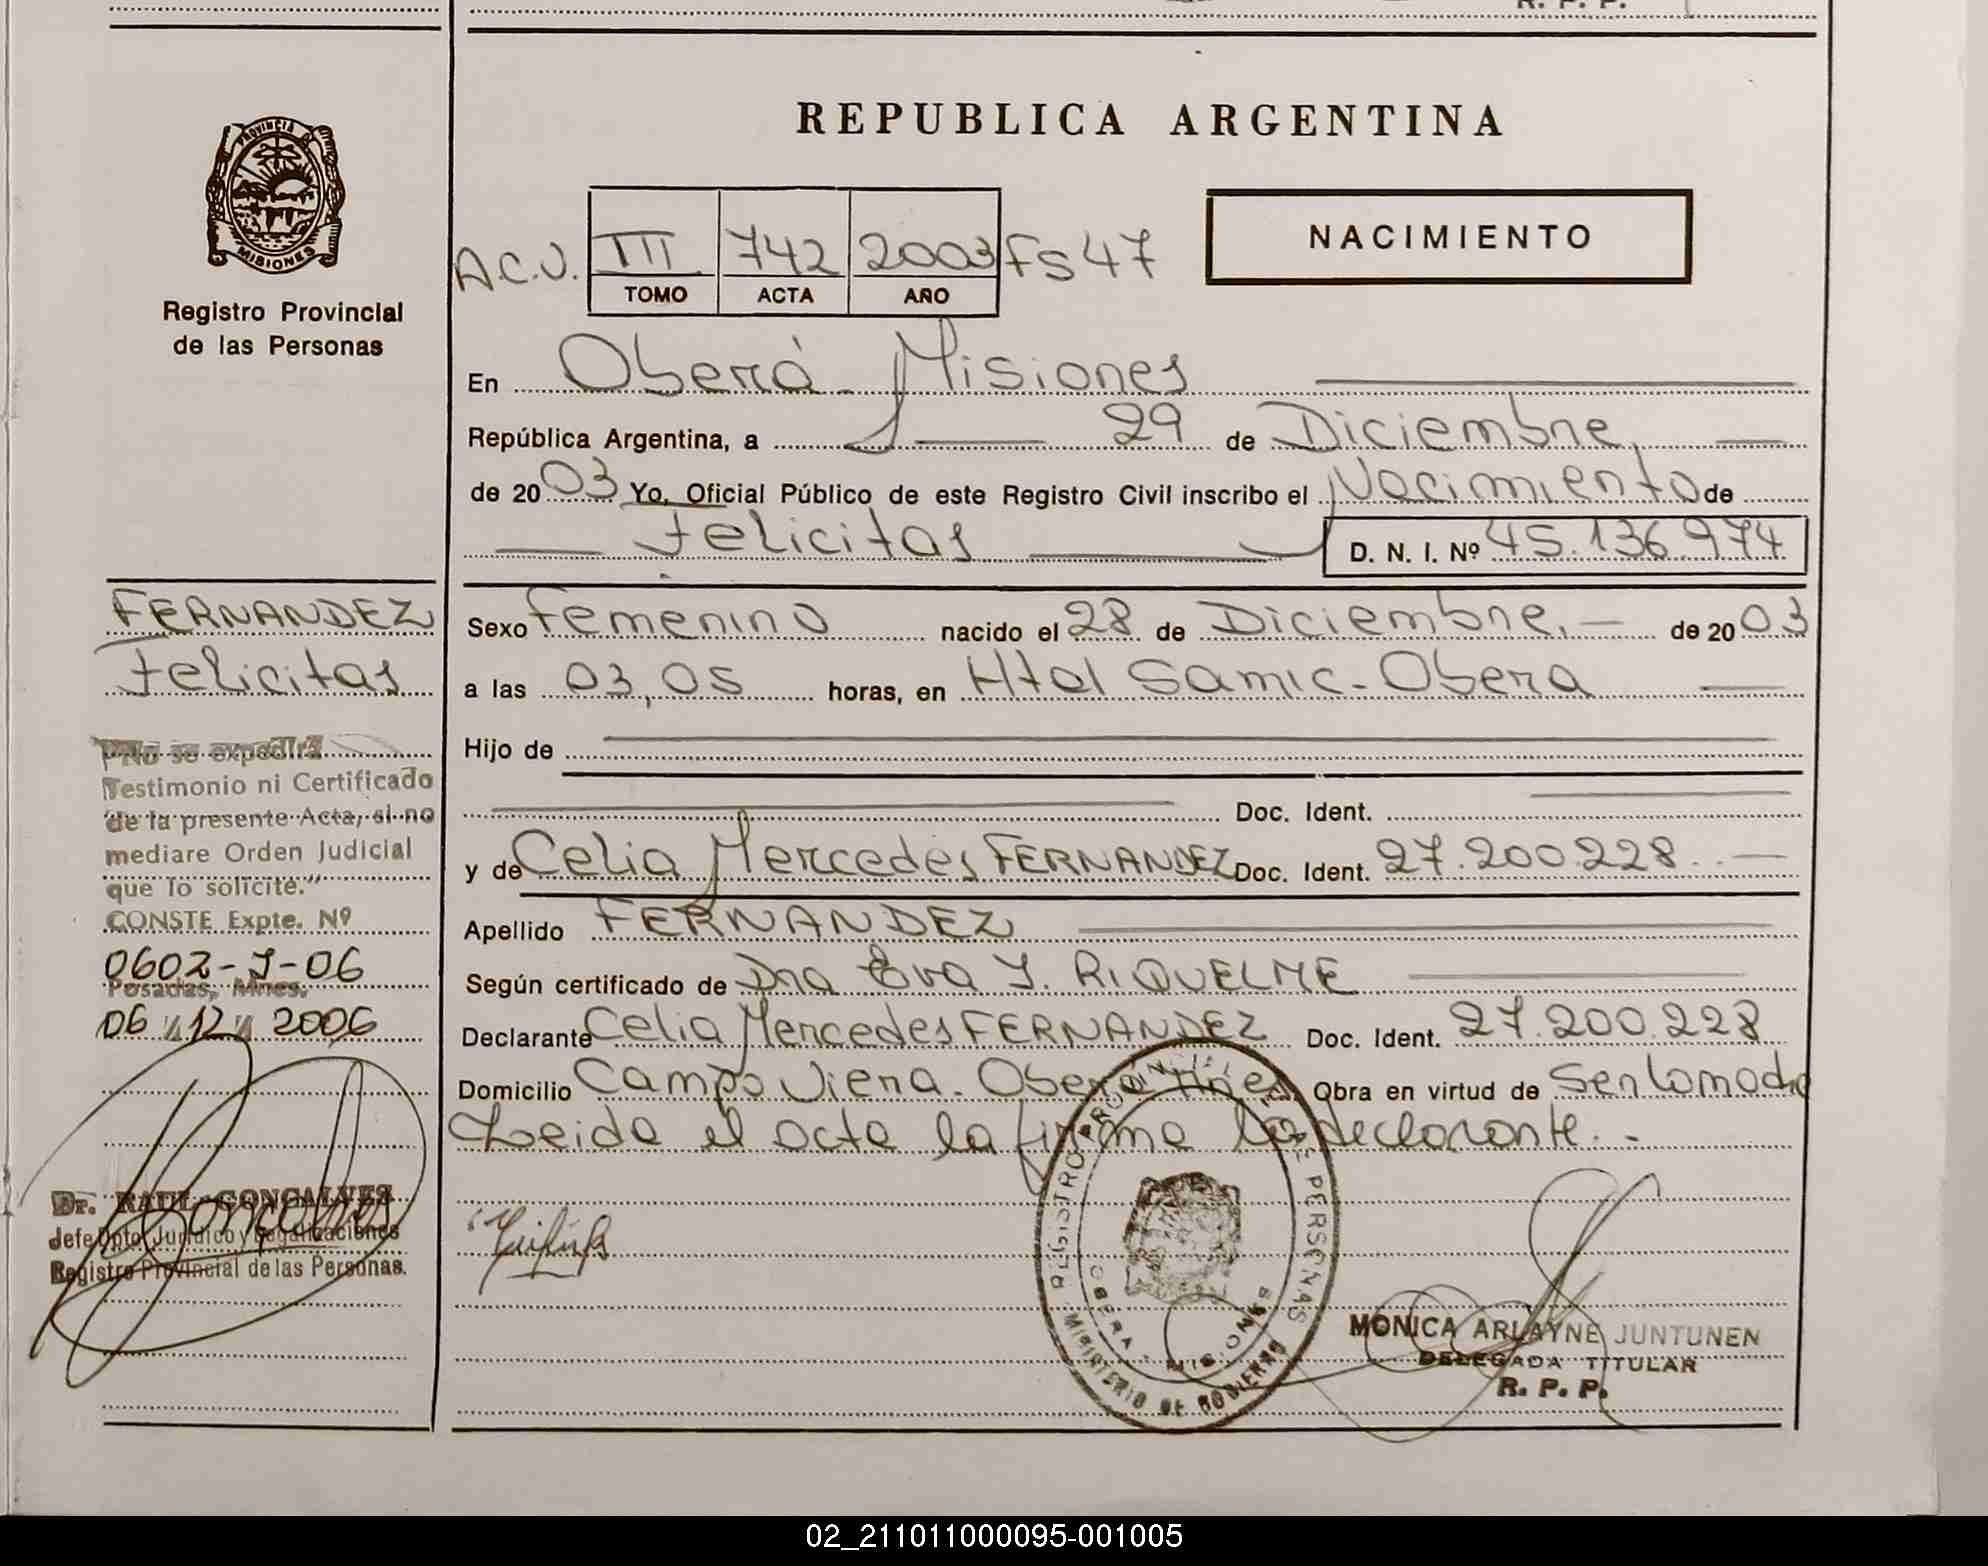 R. P. P.
PROVINCIA D
MISIONES
Registro Provincial
de las Personas
REPUBLICA ARGENTINA
NACIMIENTO
A.C.V. III 742 2003 Fs 47
TOMO ACTA AÑO
En Oberá - Misiones
República Argentina, a 29 de Diciembre,
de 2003 Yo, Oficial Público de este Registro Civil inscribo el Nacimiento de
Felicitas D. N. I. Nº 45.136.974
FERNANDEZ
Felicitas
Sexo Femenino nacido el 28 de Diciembre, de 2003
a las 03,05 horas, en Htal Samic - Obera
Hijo de
Doc. Ident.
y de Celia Mercedes FERNANDEZ Doc. Ident. 27.200.228
Apellido FERNANDEZ
Según certificado de Dra Eva Y. RIQUELME
Declarante Celia Mercedes FERNANDEZ Doc. Ident. 27.200.228
Domicilio Campo Viera. Oberá Mnes Obra en virtud de Ser la madre
Leida el acta la firma la declarante. -
"No se expedirá
Testimonio ni Certificado
de la presente Acta, si no
mediare Orden Judicial
que lo solicite."
CONSTE Expte. Nº
0602-J-06
Posadas, Mnes.
06 12 2006
Dr. RAUL GONÇALVES
Jefe Dpto. Jurídico y Organizaciones
Registro Provincial de las Personas.
REGISTRO PROVINCIAL DE LAS PERSONAS
MINISTERIO DE GOBIERNO
OBERA - MISIONES
MONICA ARLAYNE JUNTUNEN
DELEGADA TITULAR
R. P. P.
02_211011000095-001005